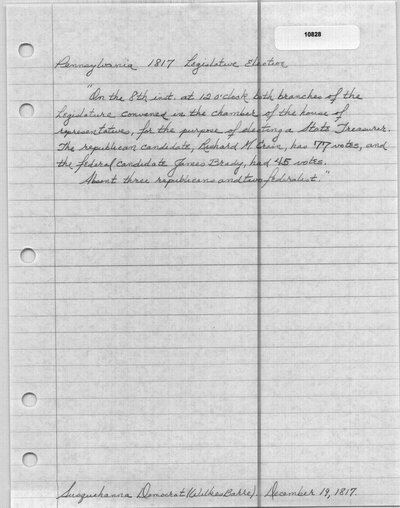 10828
Pennsylvania 1817 Legislative Election
"On the 8th inst. at 12 o'clock both branches of the
Legislature convened in the chamber of the house of
representatives, for the purpose of electing a State Treasurer.
The republican candidate, Richard M. Crain, has 77 votes, and
the federal candidate James Brady, had 45 votes.
Absent three republicans and two federalist."
Susquehanna Democrat (Wilkes Barre). December 19, 1817.